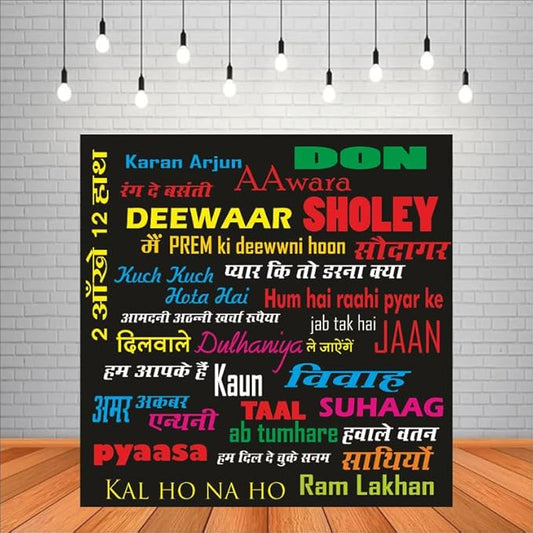 2 आँखे 12 हाथ
Karan Arjun
DON
रंग दे बसंती
AAwara
DEEWAAR
SHOLEY
मैं PREM ki deewwni hoon
सौदागर
Kuch Kuch
Hota Hai
प्यार कि तो डरना क्या
Hum hai raahi pyar ke
आमदनी अठन्नी खर्चा रुपैया
jab tak hai
JAAN
दिलवाले Dulhaniya ले जाऐंगें
हम आपके हैं
Kaun
विवाह
अमर अकबर
एन्थनी
TAAL
SUHAAG
ab tumhare हवाले वतन
साथियों
pyaasa
हम दिल दे चुके सनम
KAL HO NA HO
Ram Lakhan